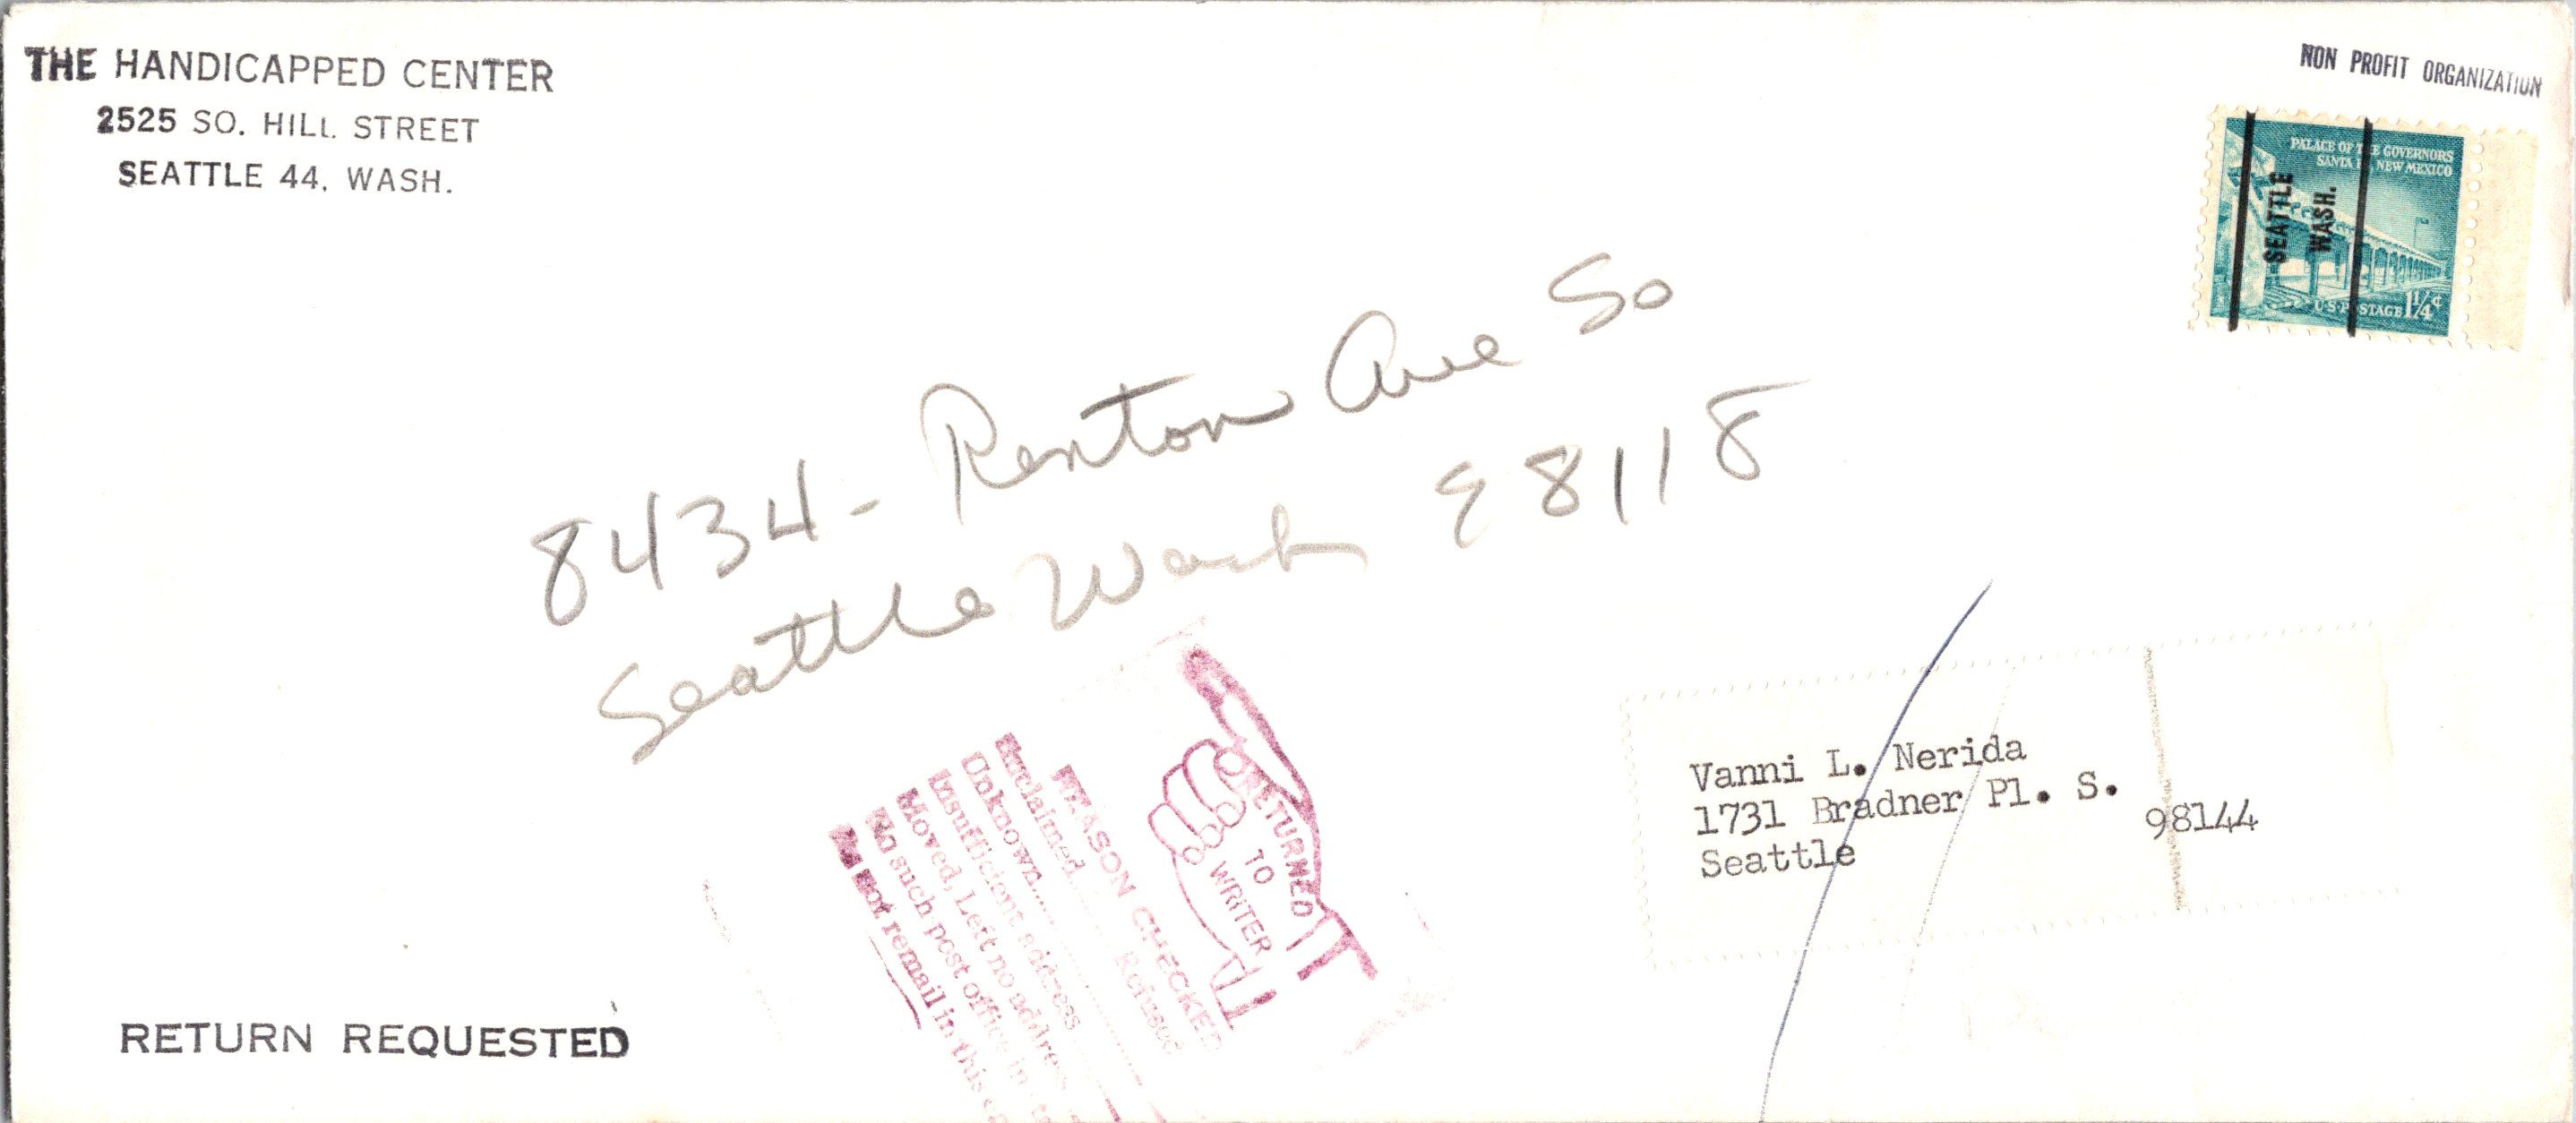 THE HANDICAPPED CENTER
2525 SO. HILL STREET
SEATTLE 44, WASH.
NON PROFIT ORGANIZATION
PALACE OF THE GOVERNORS
SANTA NEW MEXICO
SEATTLE
WASH.
U.S. POSTAGE 1 1/4¢
8434 - Renton Ave So
Seattle Wash 98118
Vanni L. Nerida
1731 Bradner Pl. S.
Seattle 98144
RETURNED
TO
WRITER
REASON CHECKED
Unclaimed Refused
Unknown
Insufficient address
Moved, Left no address
No such post office in
Do not remail in this
RETURN REQUESTED